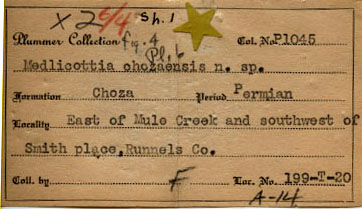 x 2 6/4 Sh. 1
Plummer Collection fig. 4 Col. No. P1045
Pl. 6
Medlicottia chozaensis n. sp.
Formation Choza Period Permian
Locality East of Mule Creek and southwest of
Smith place, Runnels Co.
Coll. by F Loc. No. 199-T-20
A-14